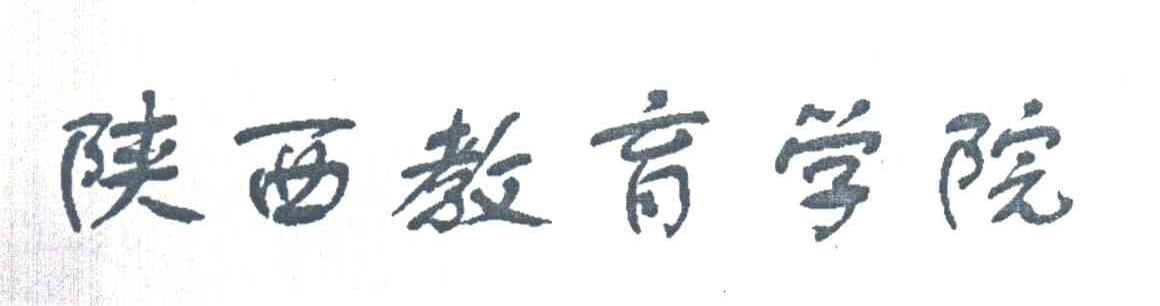 陕西教育学院